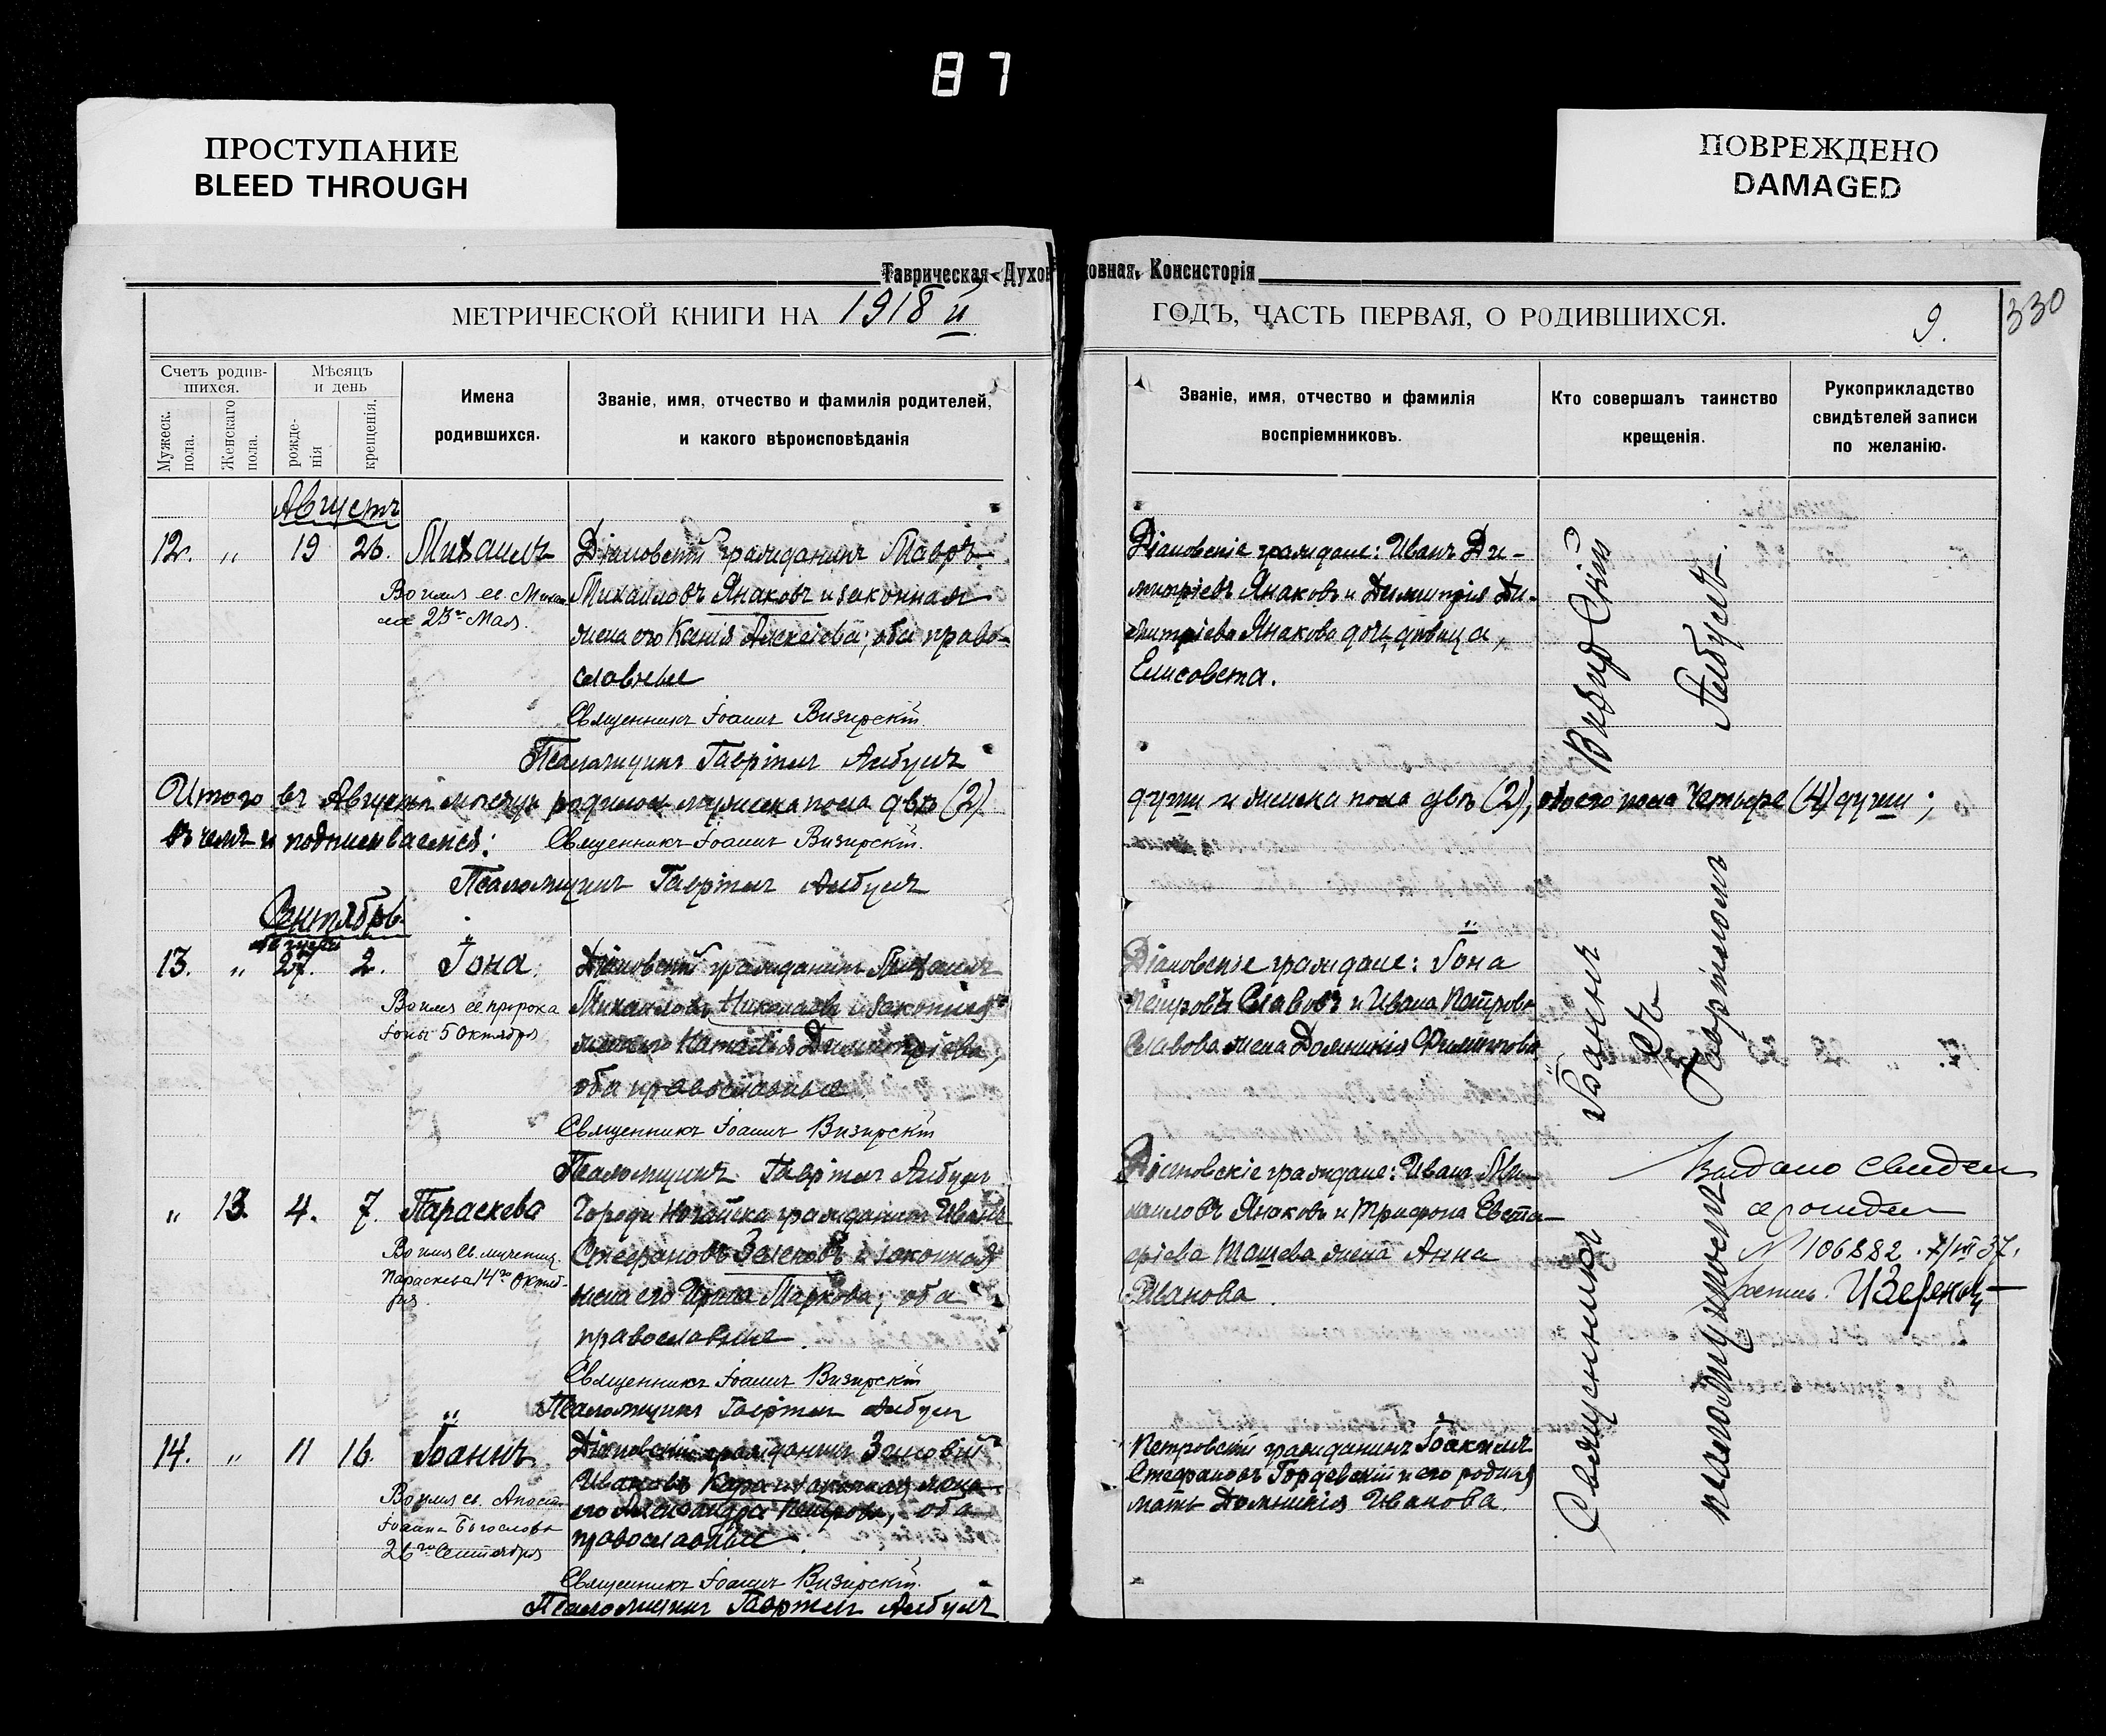 87
ПРОСТУПАНИЕ
BLEED THROUGH
ПОВРЕЖДЕНО
DAMAGED
Таврическая Духовная Консисторія
МЕТРИЧЕСКОЙ КНИГИ НА 1918 й
ГОДЪ, ЧАСТЬ ПЕРВАЯ, О РОДИВШИХСЯ.
9.
330
Счетъ родив-
шихся.
Мужеск.
пола.
Женскаго
пола.
Мѣсяцъ
и день
рожде-
нія
крещенія.
Имена
родившихся.
Званіе, имя, отчество и фамилія родителей,
и какого вѣроисповѣданія
Званіе, имя, отчество и фамилія
воспріемниковъ.
Кто совершалъ таинство
крещенія.
Рукоприкладство
свидѣтелей записи
по желанію.
Августъ
12. „ 19 26. Михаилъ
Во имя св. Миха-
ила 23го Мая.
Діановскій гражданинъ Мавръ
Михайловъ Янаковъ и законная
жена его Ксенія Алексіева; оба право-
славные
Священникъ Іоаннъ Визирскій
Псаломщикъ Гавріилъ Албулъ
Діановскіе граждане: Иванъ Ди-
митріевъ Янаковъ и Димитрія Ди-
митріева Янакова дочь, дѣвица,
Елисавета.
Итого въ Августѣ мѣсяцѣ родилось мужеска пола двѣ (2)
души и женска пола двѣ (2), обоего пола четыре (4) души;
въ чемъ и подписываемся:
Священникъ Іоаннъ Визирскій
Псаломщикъ Гавріилъ Албулъ
Сентябрь
августа
13. „ 27. 2. Іона.
Во имя св. пророка
Іоны 5 Октября
Діановскій гражданинъ Михаилъ
Михайловъ Николаевъ и законная
жена его Наталія Димитріева,
оба православные
Священникъ Іоаннъ Визирскій
Псаломщикъ Гавріилъ Албулъ
Діановскіе граждане: Іона
Петровъ Славовъ и Ивана Петрова
Славова жена Домникія Филиппова
„ 13. 4. 7. Параскева
Во имя св. мученицы
Параскевы 14го Октяб-
ря.
Города Ногайска гражданинъ Иванъ
Стефановъ Зелековъ и законная
жена его Ирина Маркова; оба
православные.
Священникъ Іоаннъ Визирскій
Псаломщикъ Гавріилъ Албулъ
Діановскіе граждане: Иванъ Ми-
хаиловъ Янаковъ и Трифона Евста-
фіева Ташева жена Анна
Иванова.
Выдано свиден
о рожден
№ 106882. 7/III 37.
14. „ 11 16. Іоаннъ
Во имя св. Апост.
Іоанна Богослова
26го Сентября
Діановскій гражданинъ Зиновій
Ивановъ Кара и законная жена
его Александра Петрова, оба
православные.
Священникъ Іоаннъ Визирскій
Псаломщикъ Гавріилъ Албулъ
Петровскій гражданинъ Іоакимъ
Стефановъ Гордевскій и его родная
мать Домникія Иванова.
Священникъ Іоаннъ Визирскій
съ
псаломщикомъ Гавріиломъ Албулъ